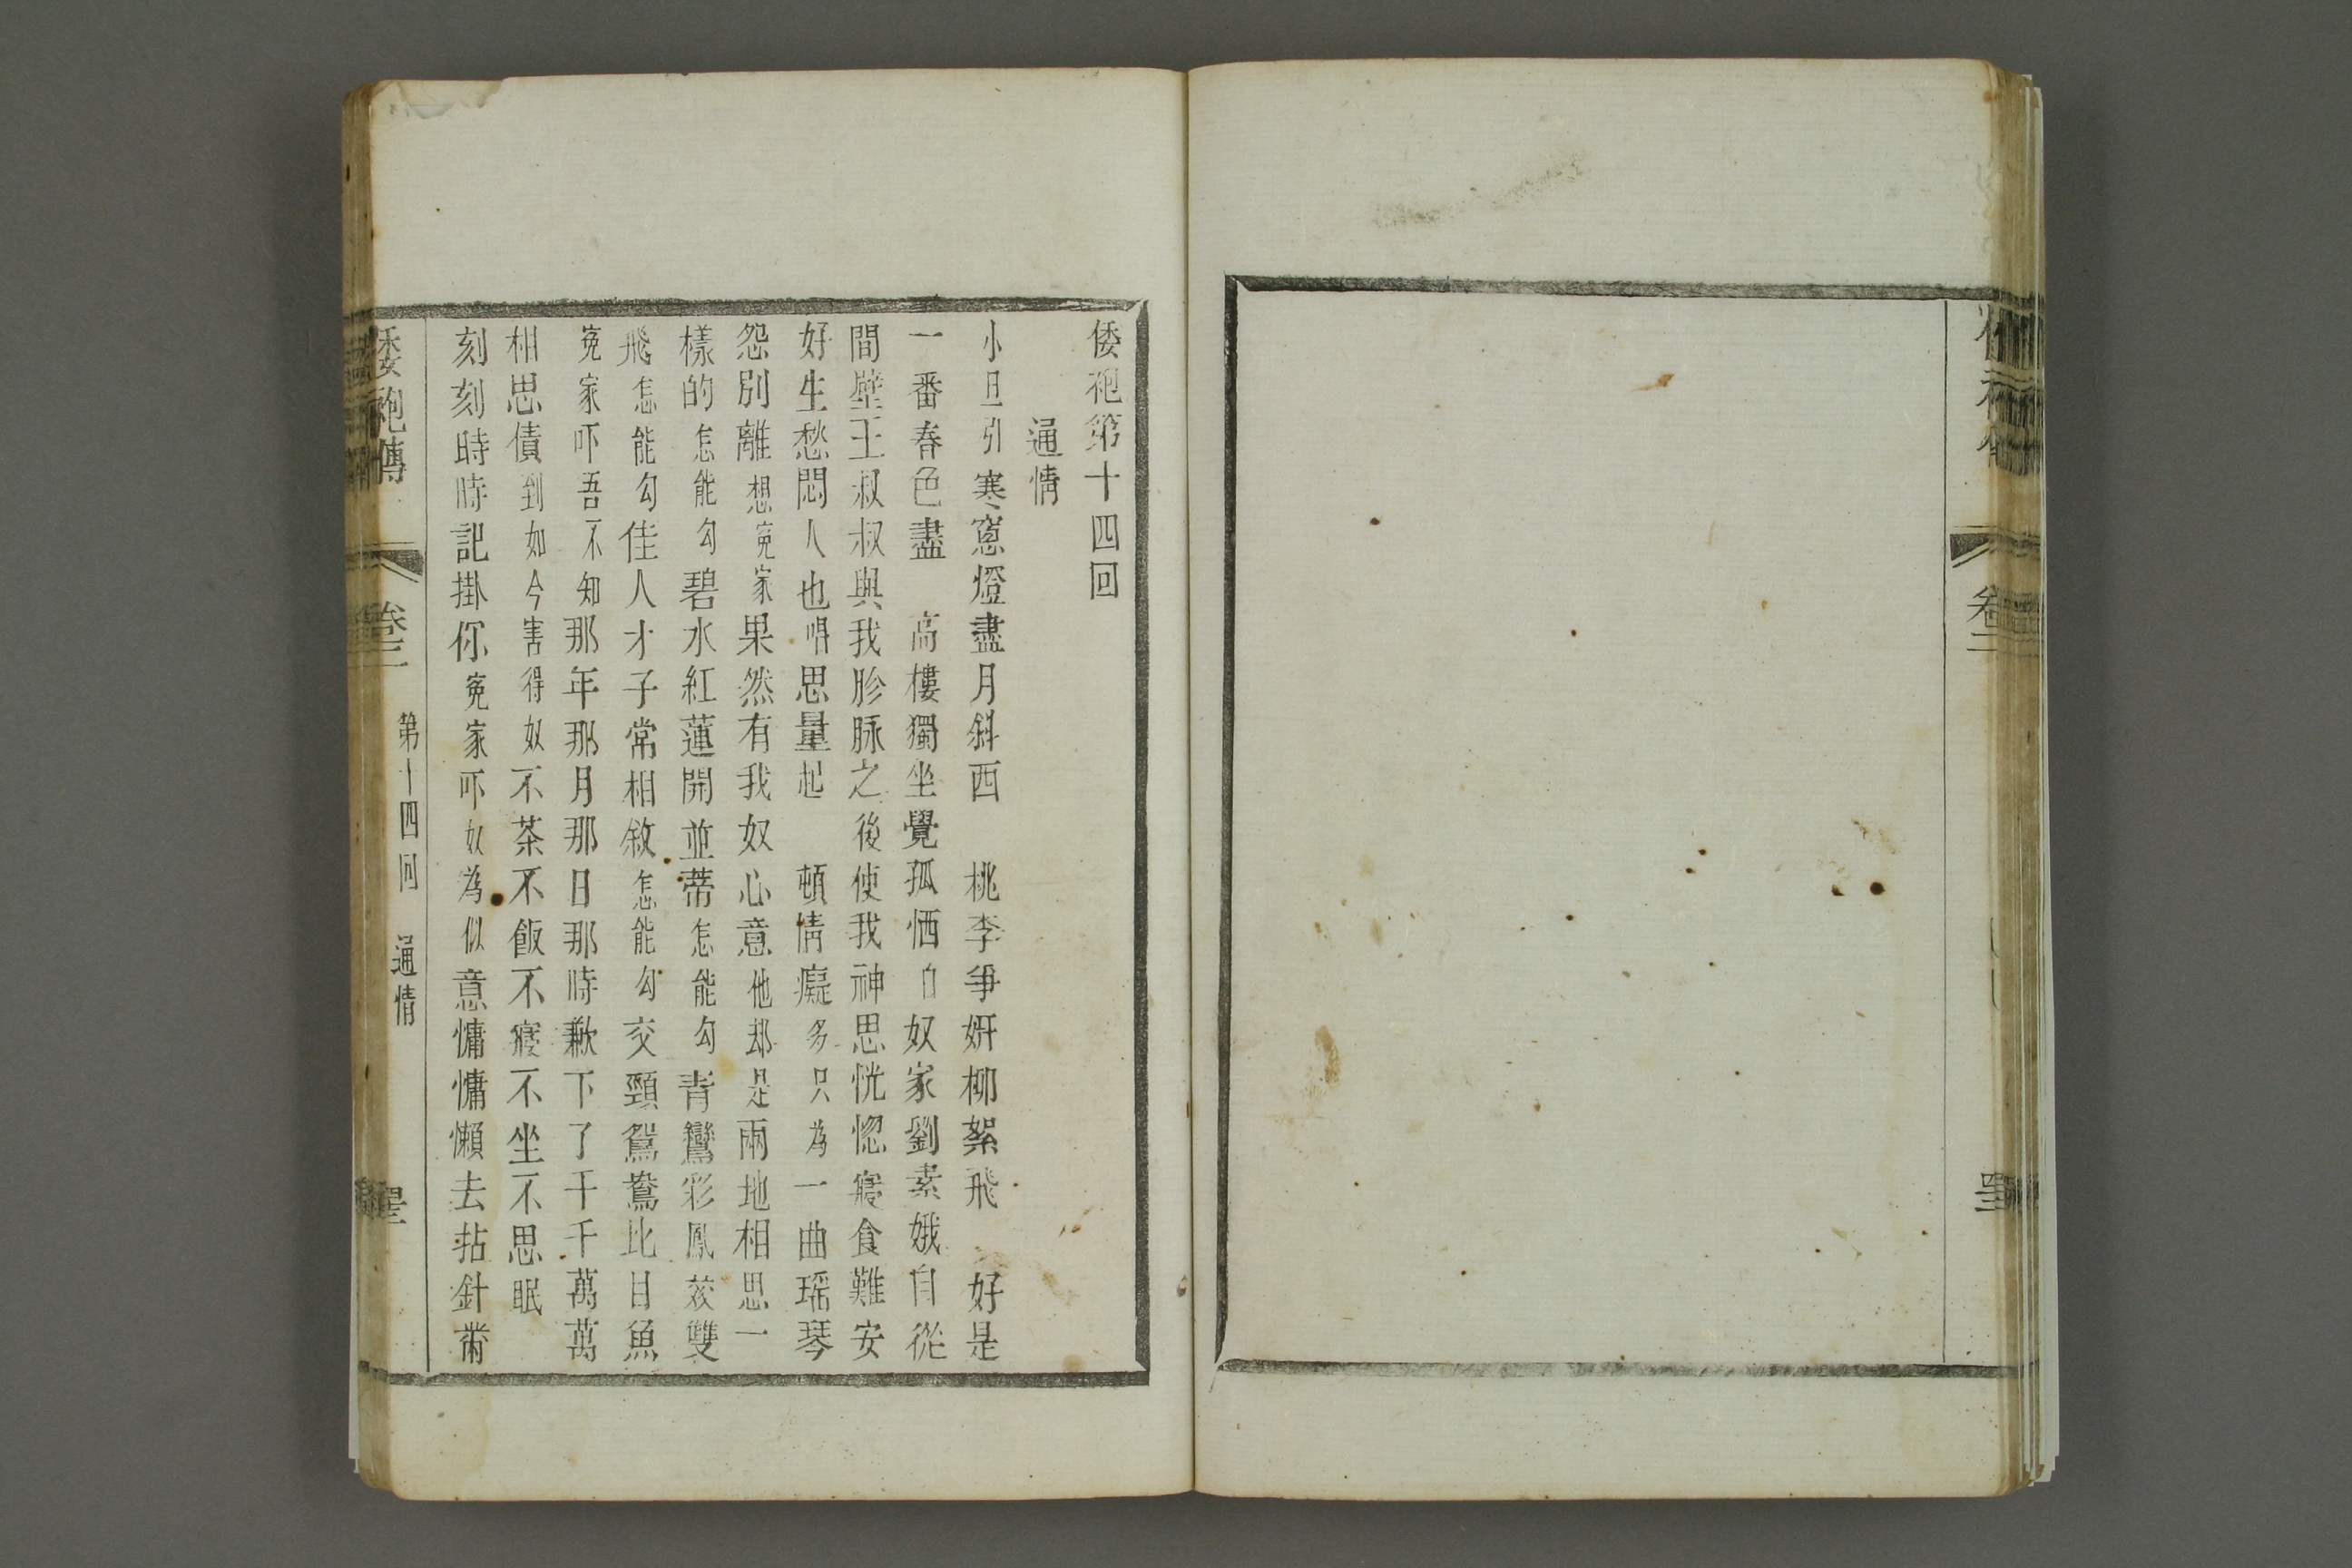 倭袍第十四回
通情
小旦引寒窻燈盡月斜西 桃李爭妍柳絮飛 好是
一番春色盡 高樓獨坐覺孤恓白奴家劉素娥自從
間壁王叔叔與我胗脉之後使我神思恍惚寢食難安
好生愁悶人也唱思量起 頓情癡多只為一曲瑶琴
怨別離想寃家果然有我奴心意他却是兩地相思一
樣的怎能勾碧水紅蓮開並蒂怎能勾青鸞彩鳳效雙
飛怎能勾佳人才子常相敘怎能勾交頸鴛鴦比目魚
寃家吓吾不知那年那月那日那時歉下了千千萬萬
相思債到如今害得奴不茶不飯不寢不坐不思眠
刻刻時時記掛你寃家吓奴為似意慵慵懶去拈針黹
倭袍傳 卷二 第十四回 通情
卷二